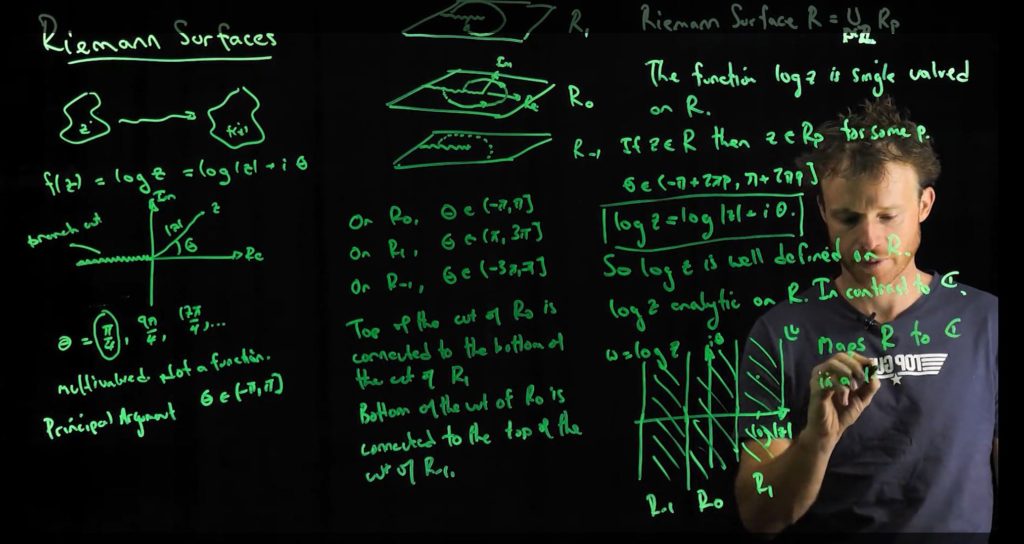 Riemann Surfaces
z
f(z)
f(z) = log z = log|z| + i θ
Im
branch cut
|z|
z
θ
Re
θ = π/4, 9π/4, 17π/4, ...
multivalued. Not a function.
Principal Argument θ ∈ (-π, π]
R₁
Im
Re
R₀
R₋₁
On R₀, θ ∈ (-π, π]
On R₁, θ ∈ (π, 3π]
On R₋₁, θ ∈ (-3π, -π]
Top of the cut of R₀ is
connected to the bottom of
the cut of R₁
Bottom of the cut of R₀ is
connected to the top of the
cut of R₋₁.
Riemann Surface R = ∪ Rp
The function log z is single valued
on R.
If z ∈ R then z ∈ Rp for some p.
θ ∈ (-π + 2πp, π + 2πp]
log z = log|z| + i θ.
So log z is well defined on R.
log z analytic on R. In contrast to ℂ.
w = log z
iθ
log|z|
R₋₁ R₀ R₁
Maps R to ℂ
in a
TOP GU